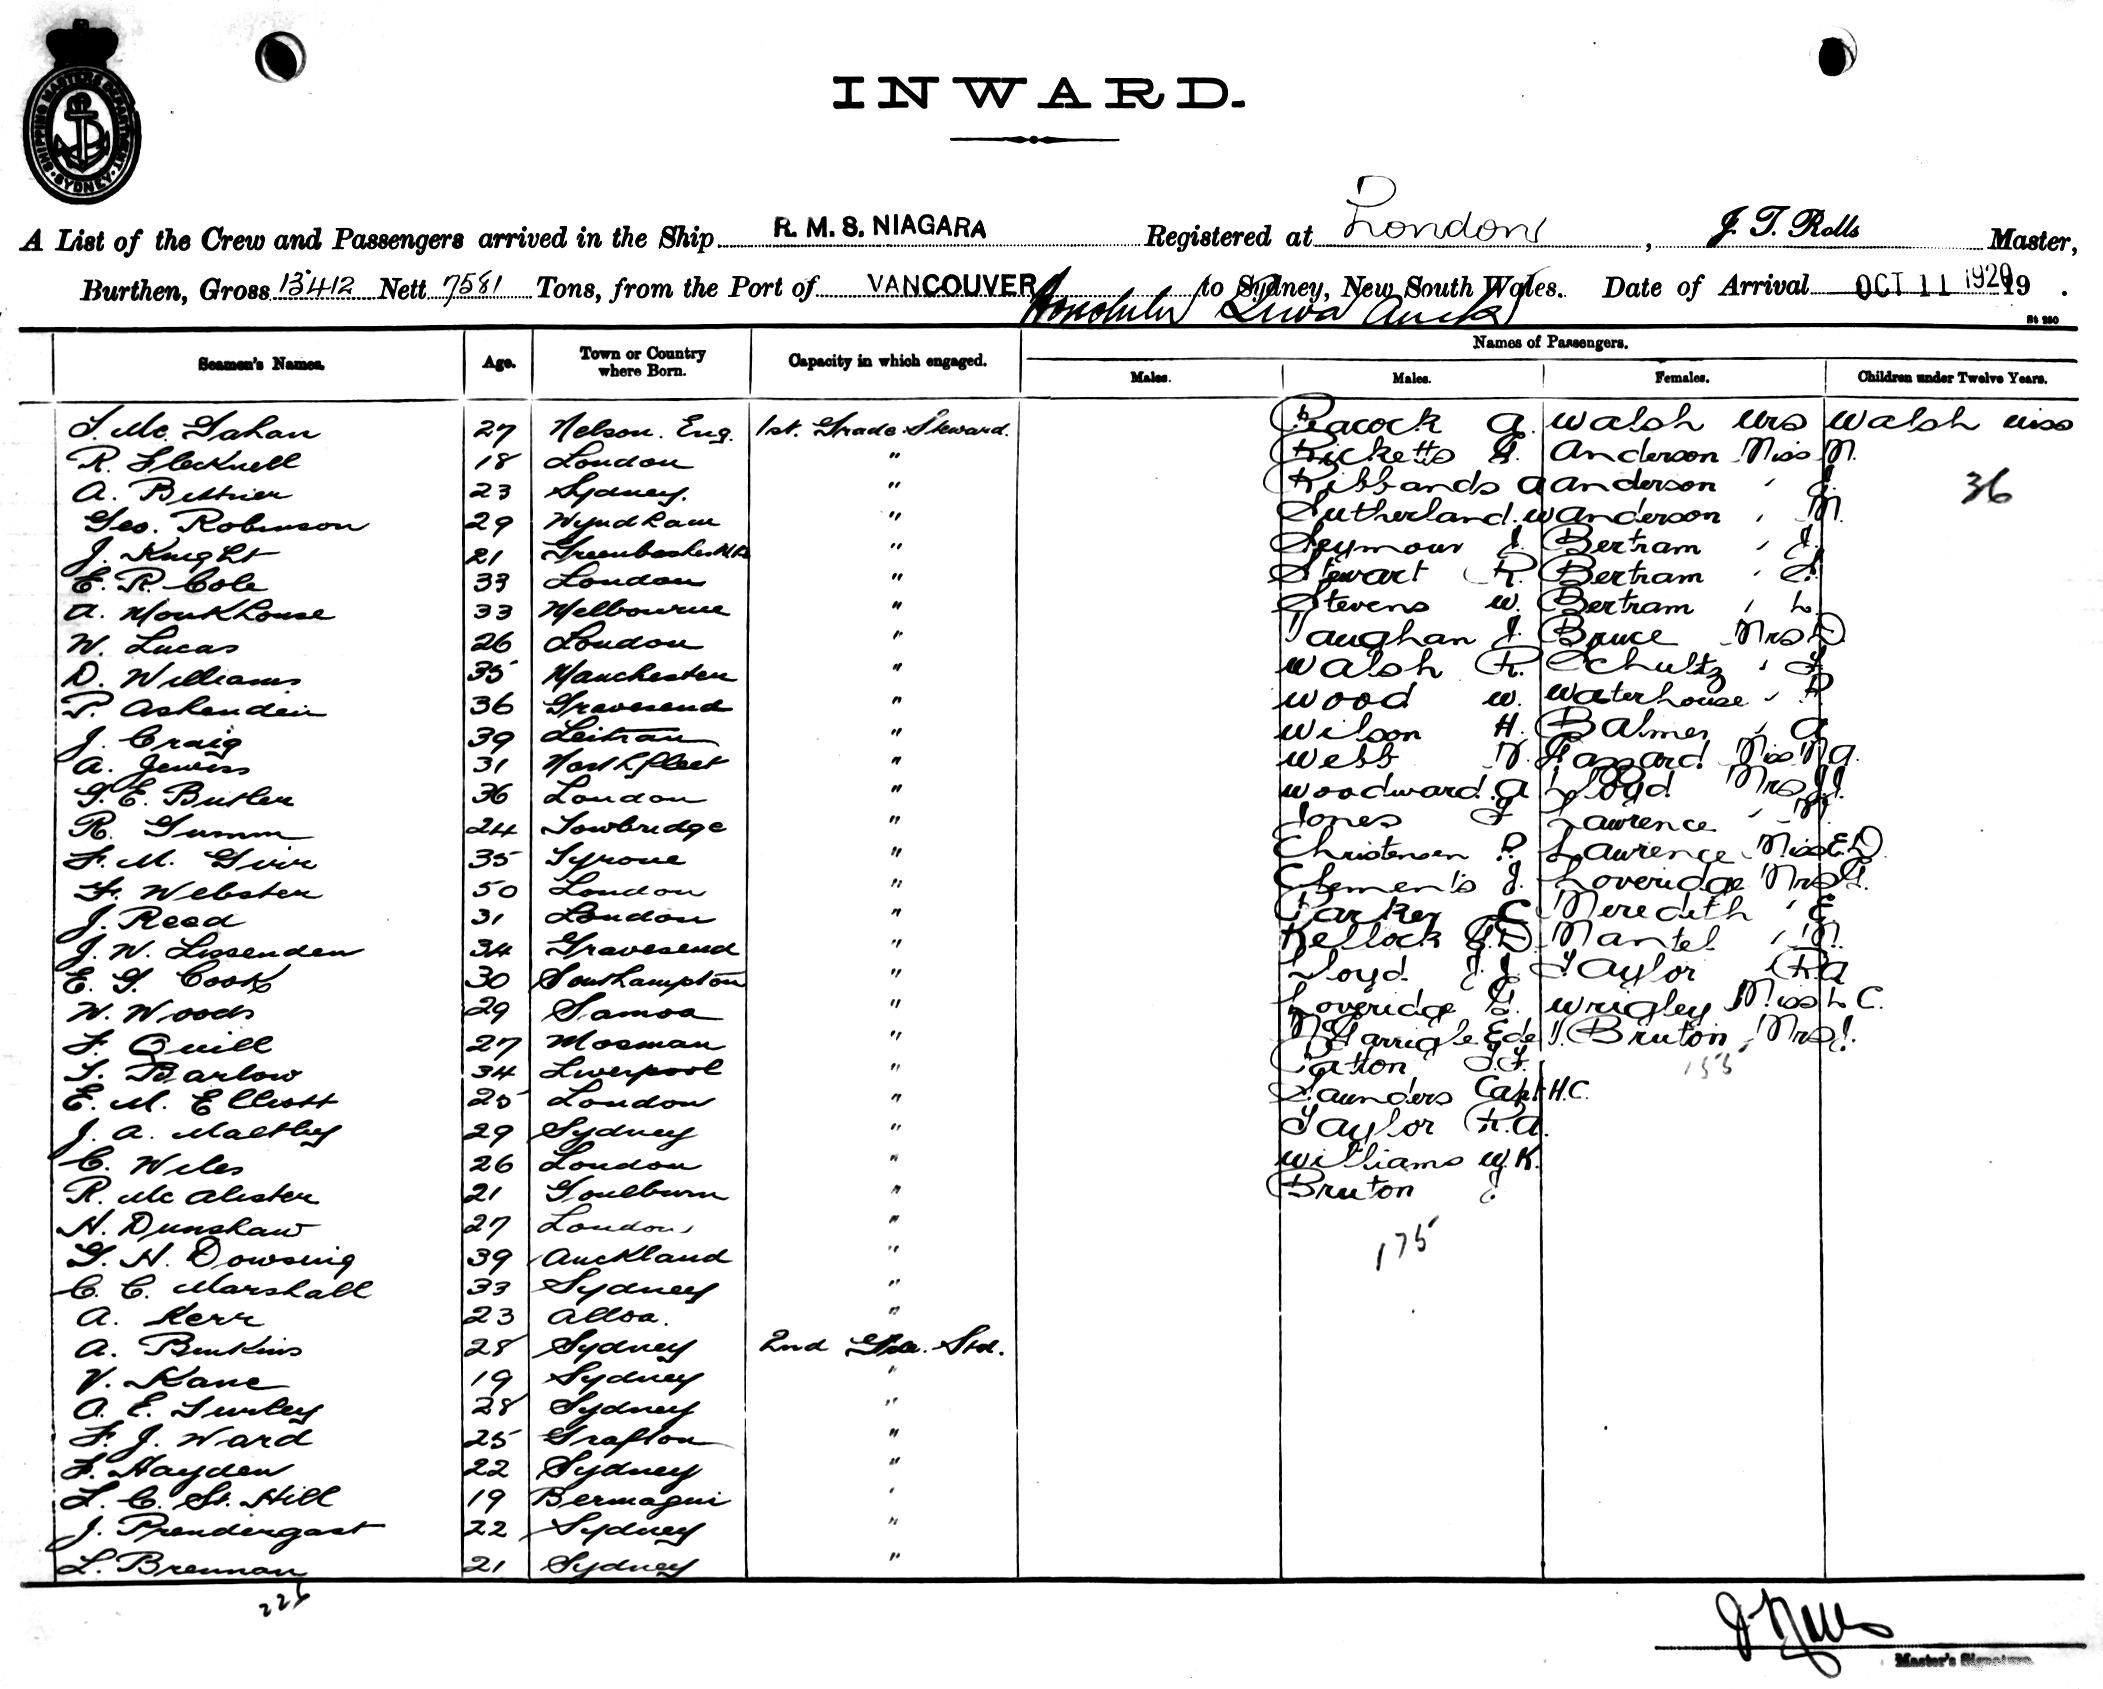 SHIPPING MASTERS DEPARTMENT SYDNEY
INWARD.
A List of the Crew and Passengers arrived in the Ship R. M. S. NIAGARA Registered at London, J. T. Rolls Master,
Burthen, Gross 13412 Nett 7581 Tons, from the Port of VANCOUVER to Sydney, New South Wales. Date of Arrival OCT 11 1920 19 .
Honolulu Suva Auck
St 280
Seamen's Names. Age. Town or Country where Born. Capacity in which engaged. Names of Passengers.
Males. Males. Females. Children under Twelve Years.
T. Mc Gahan 27 Nelson. Eng. 1st. Grade Steward. Peacock A. Walsh Mrs Walsh Miss
R. Flecknell 18 London " Ricketts G. Anderson Miss M.
A. 23 Sydney. " Ribbands A Anderson " J. 36
Geo. Robinson 29 Wyndham " Sutherland. W Anderson " M.
J. Knight 21 " Seymour J. Bertram " J.
E. R. Cole 33 London " Stewart R. Bertram " S.
A. Monkhouse 33 Melbourne " Stevens W. Bertram " L.
W. Lucas 26 London " Vaughan J. Bruce Mrs D
D. Williams 35 Manchester " Walsh R. Schultz " F
P. Ashenden 36 Gravesend " Wood W. Waterhouse " P
J. Craig 39 Leitrim " Wilson H. Balmer " A
A. Jewiss 31 Northfleet " Webb N. Hazzard Miss M A.
G. E. Butler 36 London " Woodward. A Lloyd Mrs J J.
R. Gumm 24 Towbridge " Jones F Lawrence " M.
F. M. Girr 35 Tyrone " Christensen P. Lawrence Miss E. D.
F. Webster 50 London " Clements J. Loveridge Mrs G.
J. Reed 31 London " Parker C Meredith " E
J. W. Lissenden 34 Gravesend " Kellock G. D. Mantel " M.
E. G. Cook 30 Southampton " Lloyd J. J. Taylor " R A
W. Woods 29 Samoa " Loveridge G. Wrigley Miss L C.
F. Quill 27 Mosman " McGarrigle Ede J. Bruton Mrs J.
T. Barlow 34 Liverpool " Patton J. F. 155
E. M. Elliott 25 London " Saunders Capt H. C.
J. A. Maltby 29 Sydney " Taylor R. A.
C. Wiles 26 London " Williams W. K.
R. Mc Alister 21 Goulburn " Bruton J
H. Dunshaw 27 London "
G. H. Dowsing 39 Auckland " 175
C. C. Marshall 33 Sydney "
A. Kerr 23 Alloa. "
A. Benkins 28 Sydney 2nd Gde. Std.
V. Kane 19 Sydney "
A. E. Turley 28 Sydney "
F. J. Ward 25 Grafton "
F. Hayden 22 Sydney "
L. C. St. Hill 19 Bermagui "
J. Prendergast 22 Sydney "
L. Brennan 21 Sydney "
226
J Rolls
Master's Signature.